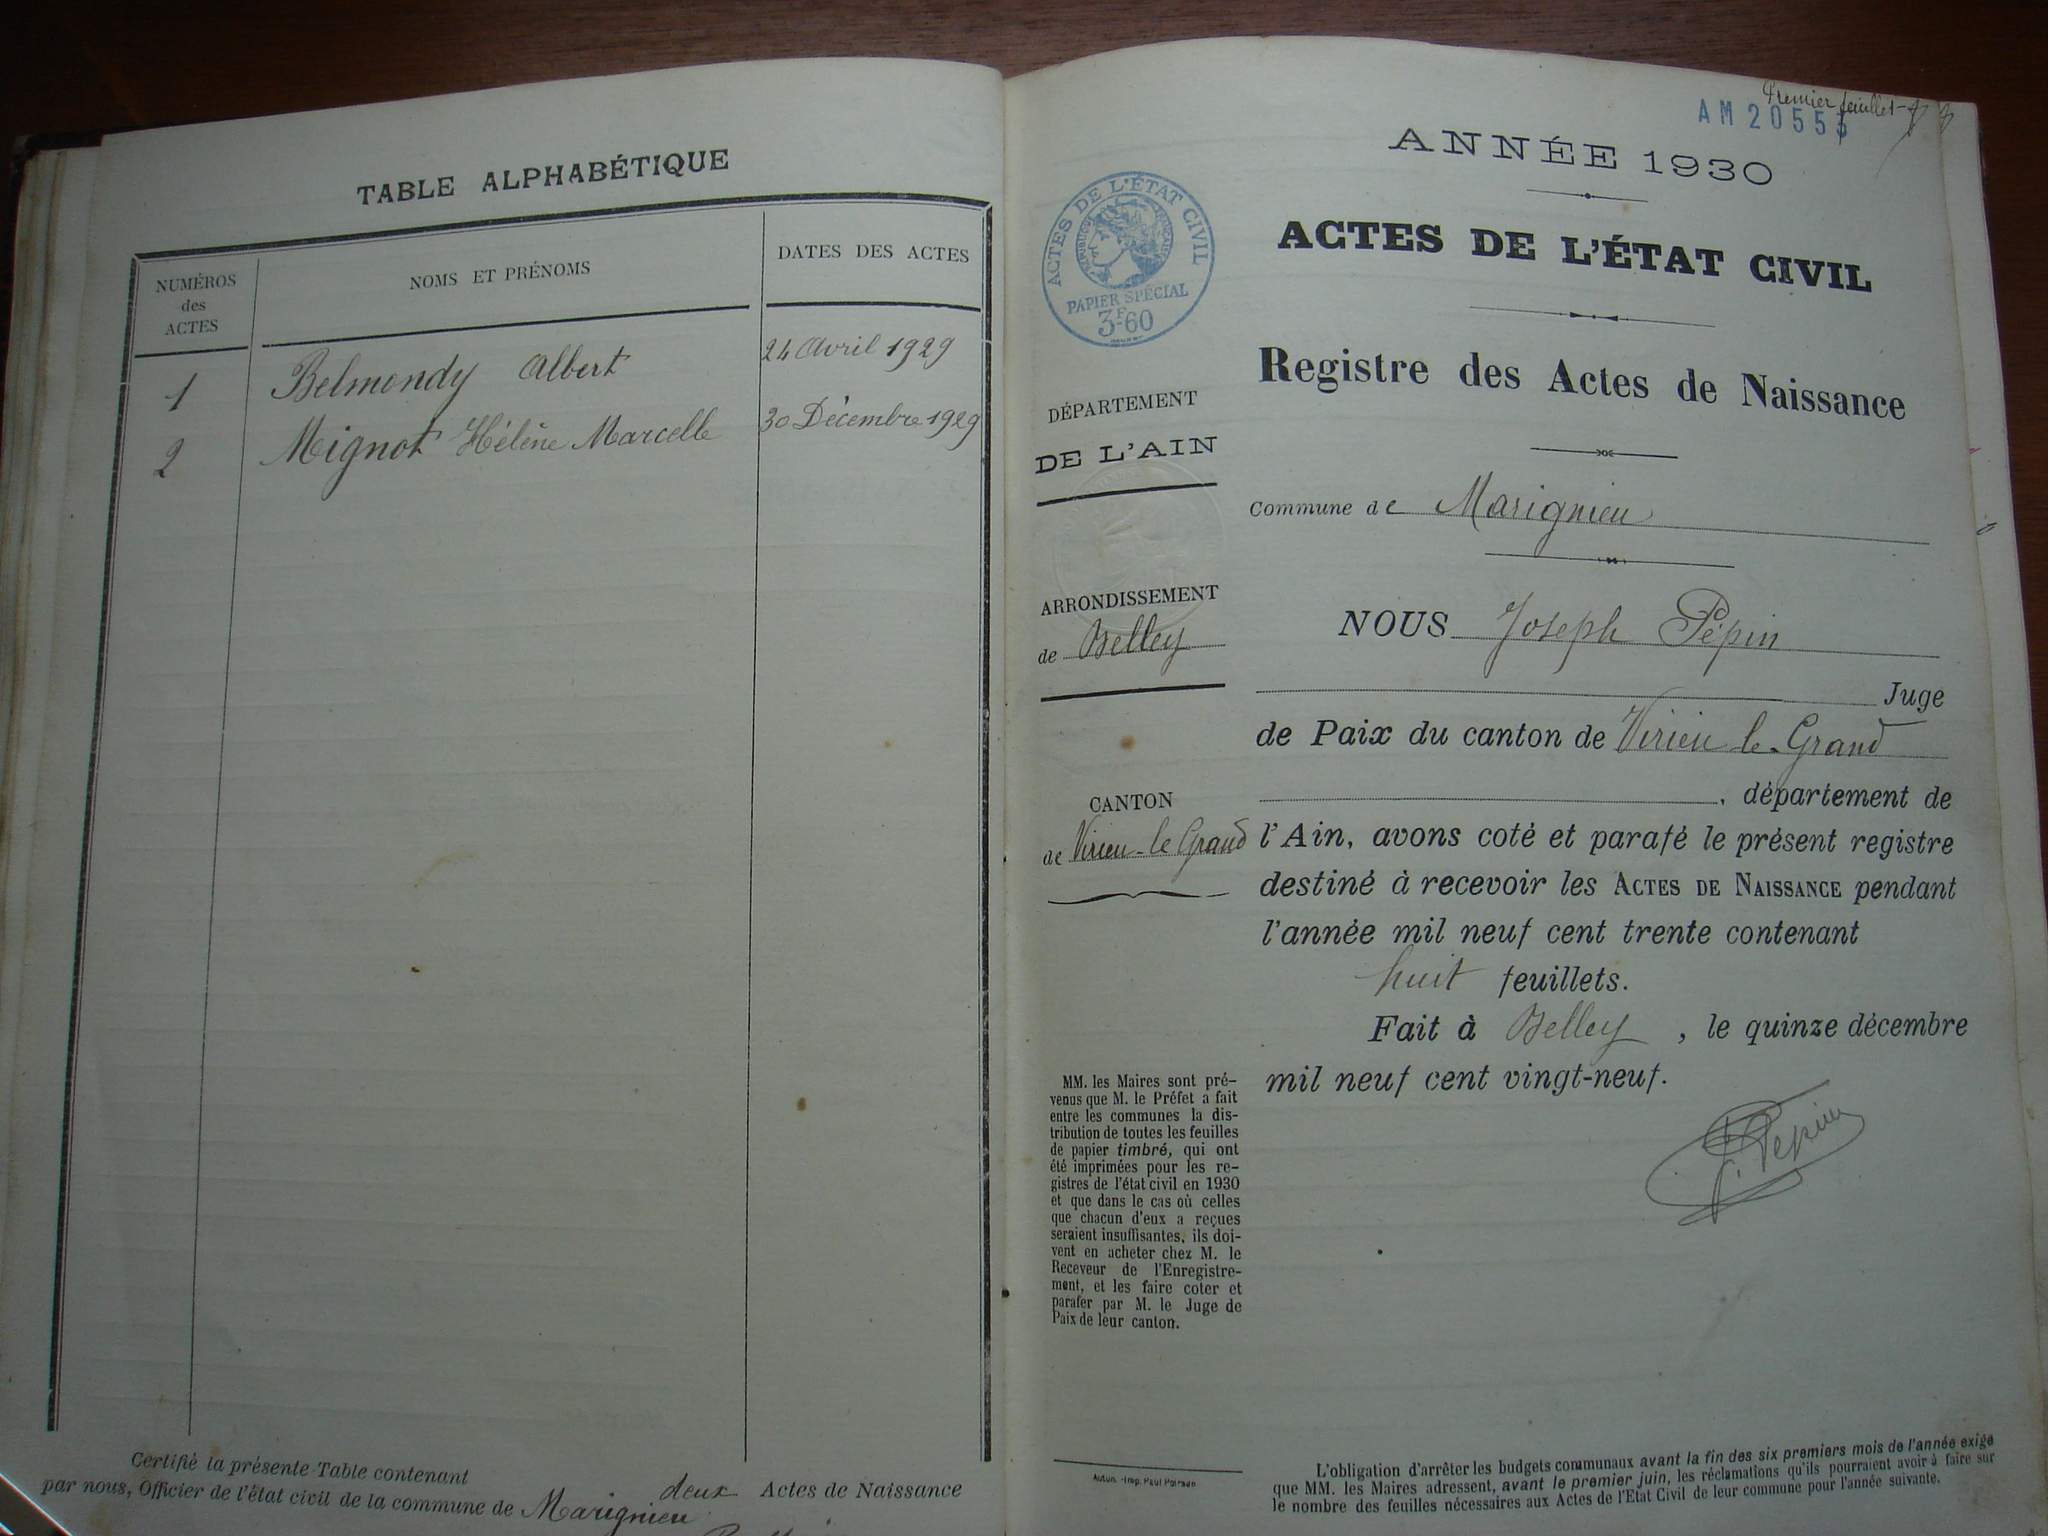 TABLE ALPHABÉTIQUE
NUMÉROS
des
ACTES
NOMS ET PRÉNOMS
DATES DES ACTES
1 Belmondy Albert 24 Avril 1929
2 Mignot Hélène Marcelle 30 Décembre 1929
Certifié la présente Table contenant deux Actes de Naissance
par nous, Officier de l'état civil de la commune de Marignieu
Premier feuillet
AM 2055
ANNÉE 1930
ACTES DE L'ÉTAT CIVIL
RÉPUBLIQUE FRANÇAISE
PAPIER SPÉCIAL
3F60
ACTES DE L'ÉTAT CIVIL
Registre des Actes de Naissance
DÉPARTEMENT
DE L'AIN
Commune de Marignieu
ARRONDISSEMENT
de Belley
NOUS Joseph Pépin
Juge
de Paix du canton de Virieu le-Grand
CANTON
de Virieu-le Grand
, département de
l'Ain, avons coté et parafé le présent registre
destiné à recevoir les ACTES DE NAISSANCE pendant
l'année mil neuf cent trente contenant
huit feuillets.
Fait à Belley, le quinze décembre
mil neuf cent vingt-neuf.
J. Pépin
MM. les Maires sont pré-
venus que M. le Préfet a fait
entre les communes la dis-
tribution de toutes les feuilles
de papier timbré, qui ont
été imprimées pour les re-
gistres de l'état civil en 1930
et que dans le cas où celles
que chacun d'eux a reçues
seraient insuffisantes, ils doi-
vent en acheter chez M. le
Receveur de l'Enregistre-
ment, et les faire coter et
parafer par M. le Juge de
Paix de leur canton.
Autun. -Imp. Paul Poirson
L'obligation d'arrêter les budgets communaux avant la fin des six premiers mois de l'année exige
que MM. les Maires adressent, avant le premier juin, les réclamations qu'ils pourraient avoir à faire sur
le nombre des feuilles nécessaires aux Actes de l'Etat Civil de leur commune pour l'année suivante.